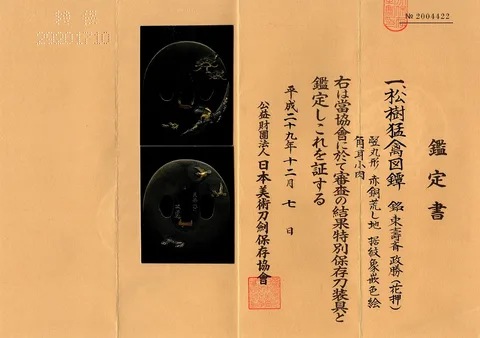 № 2004422
鑑定書
一、松樹猛禽図鐔 銘 東壽斎 政勝(花押)
竪丸形 赤銅荒し地 据紋象嵌色絵
角耳小肉
右は當協會に於て審査の結果特別保存刀装具と
鑑定しこれを証する
平成二十九年十二月七日
公益財團法人 日本美術刀劍保存協會